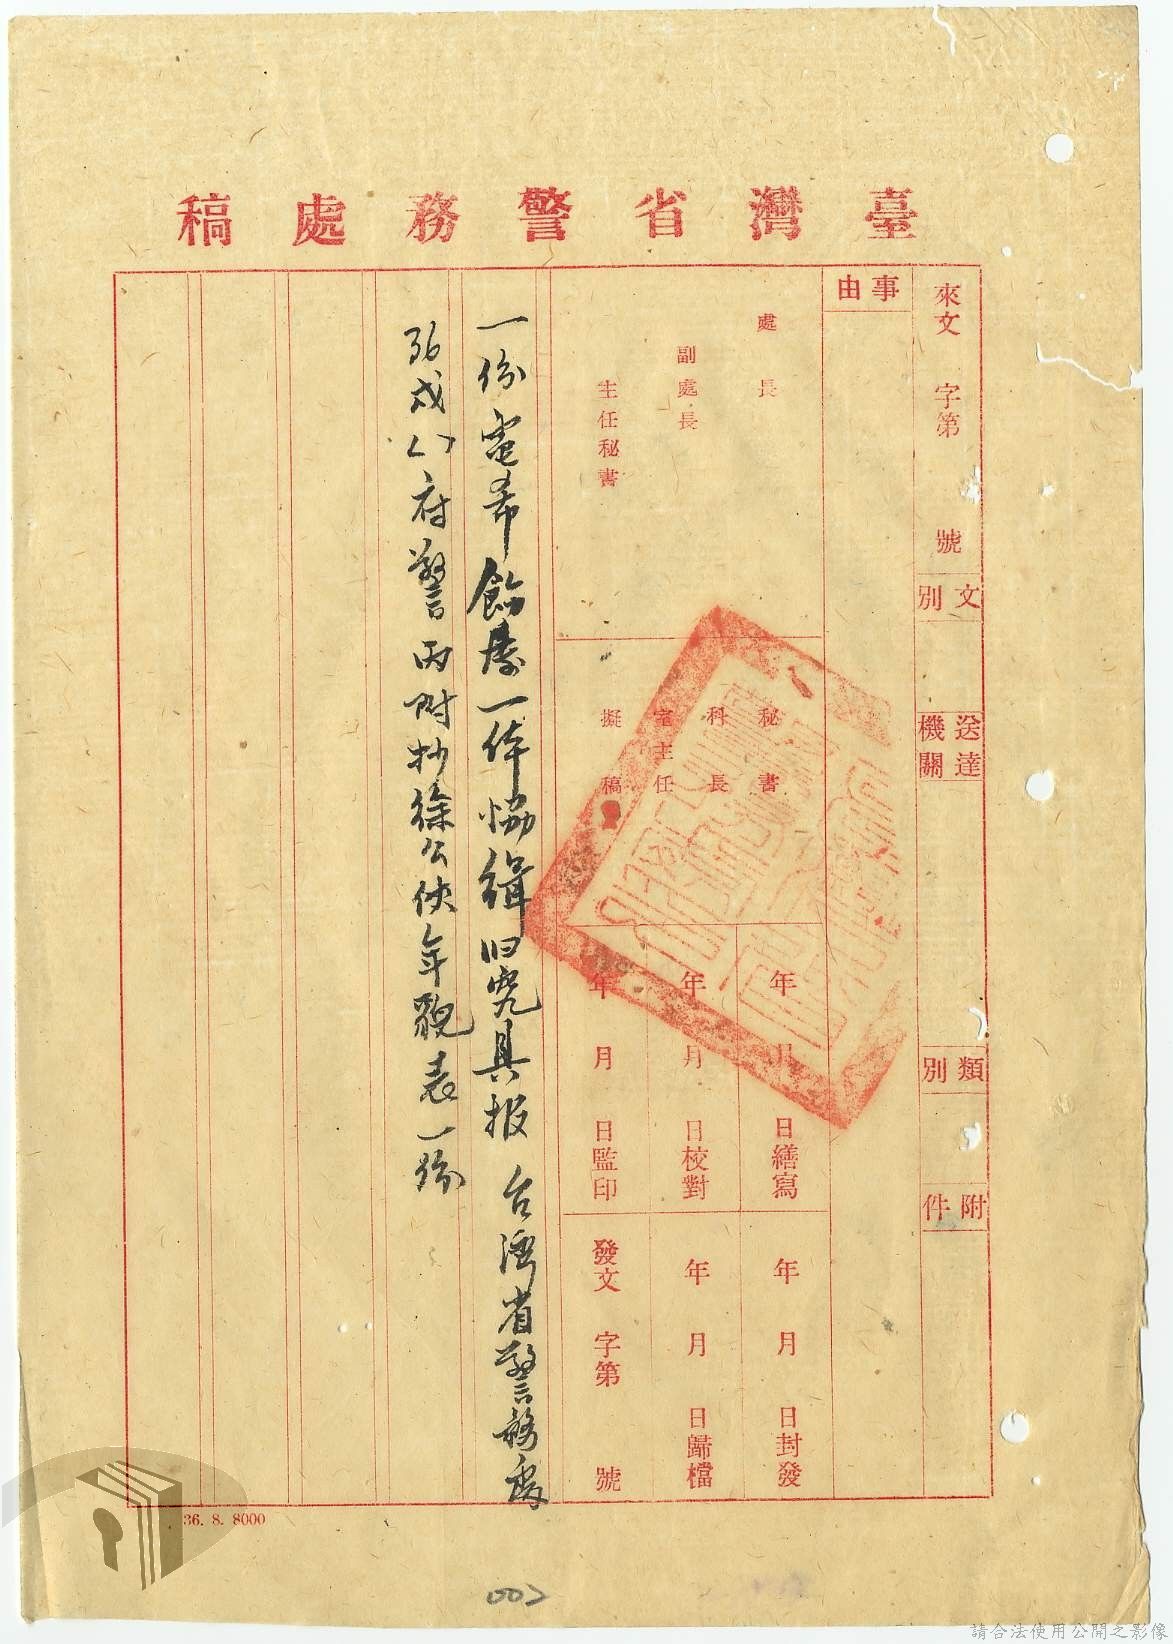 臺灣省警務處稿
來文 字第 號
文別
送達機關
類別
附件
事由
處長
副處長
主任秘書
秘書
科長
室主任
擬稿
年 月 日繕寫
年 月 日校對
年 月 日監印
年 月 日封發
年 月 日歸檔
發文 字第 號
一份電希飭屬一体協緝归究具报 台湾省警務處
36戌 府警丙附抄徐公俠年貌表一份
36. 8. 8000
002
請合法使用公開之影像